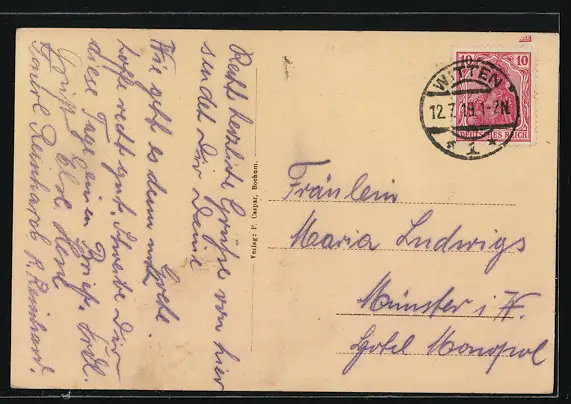 Recht herzliche Grüße von hier
sendet Dir Deine
Grete.
Wie geht es denn noch
hoffe recht gut. Schreibe Dir
diese Tage einen Brief.
Gruß Else
Reinhard R. Reinhart.
Verlag: P. Caspar, Bochum.
10 10
DEUTSCHES REICH
WITTEN
12.7.18.1-2N.
* 1 *
Fräulein
Maria Ludwigs
Münster i. W.
Hotel Monopol